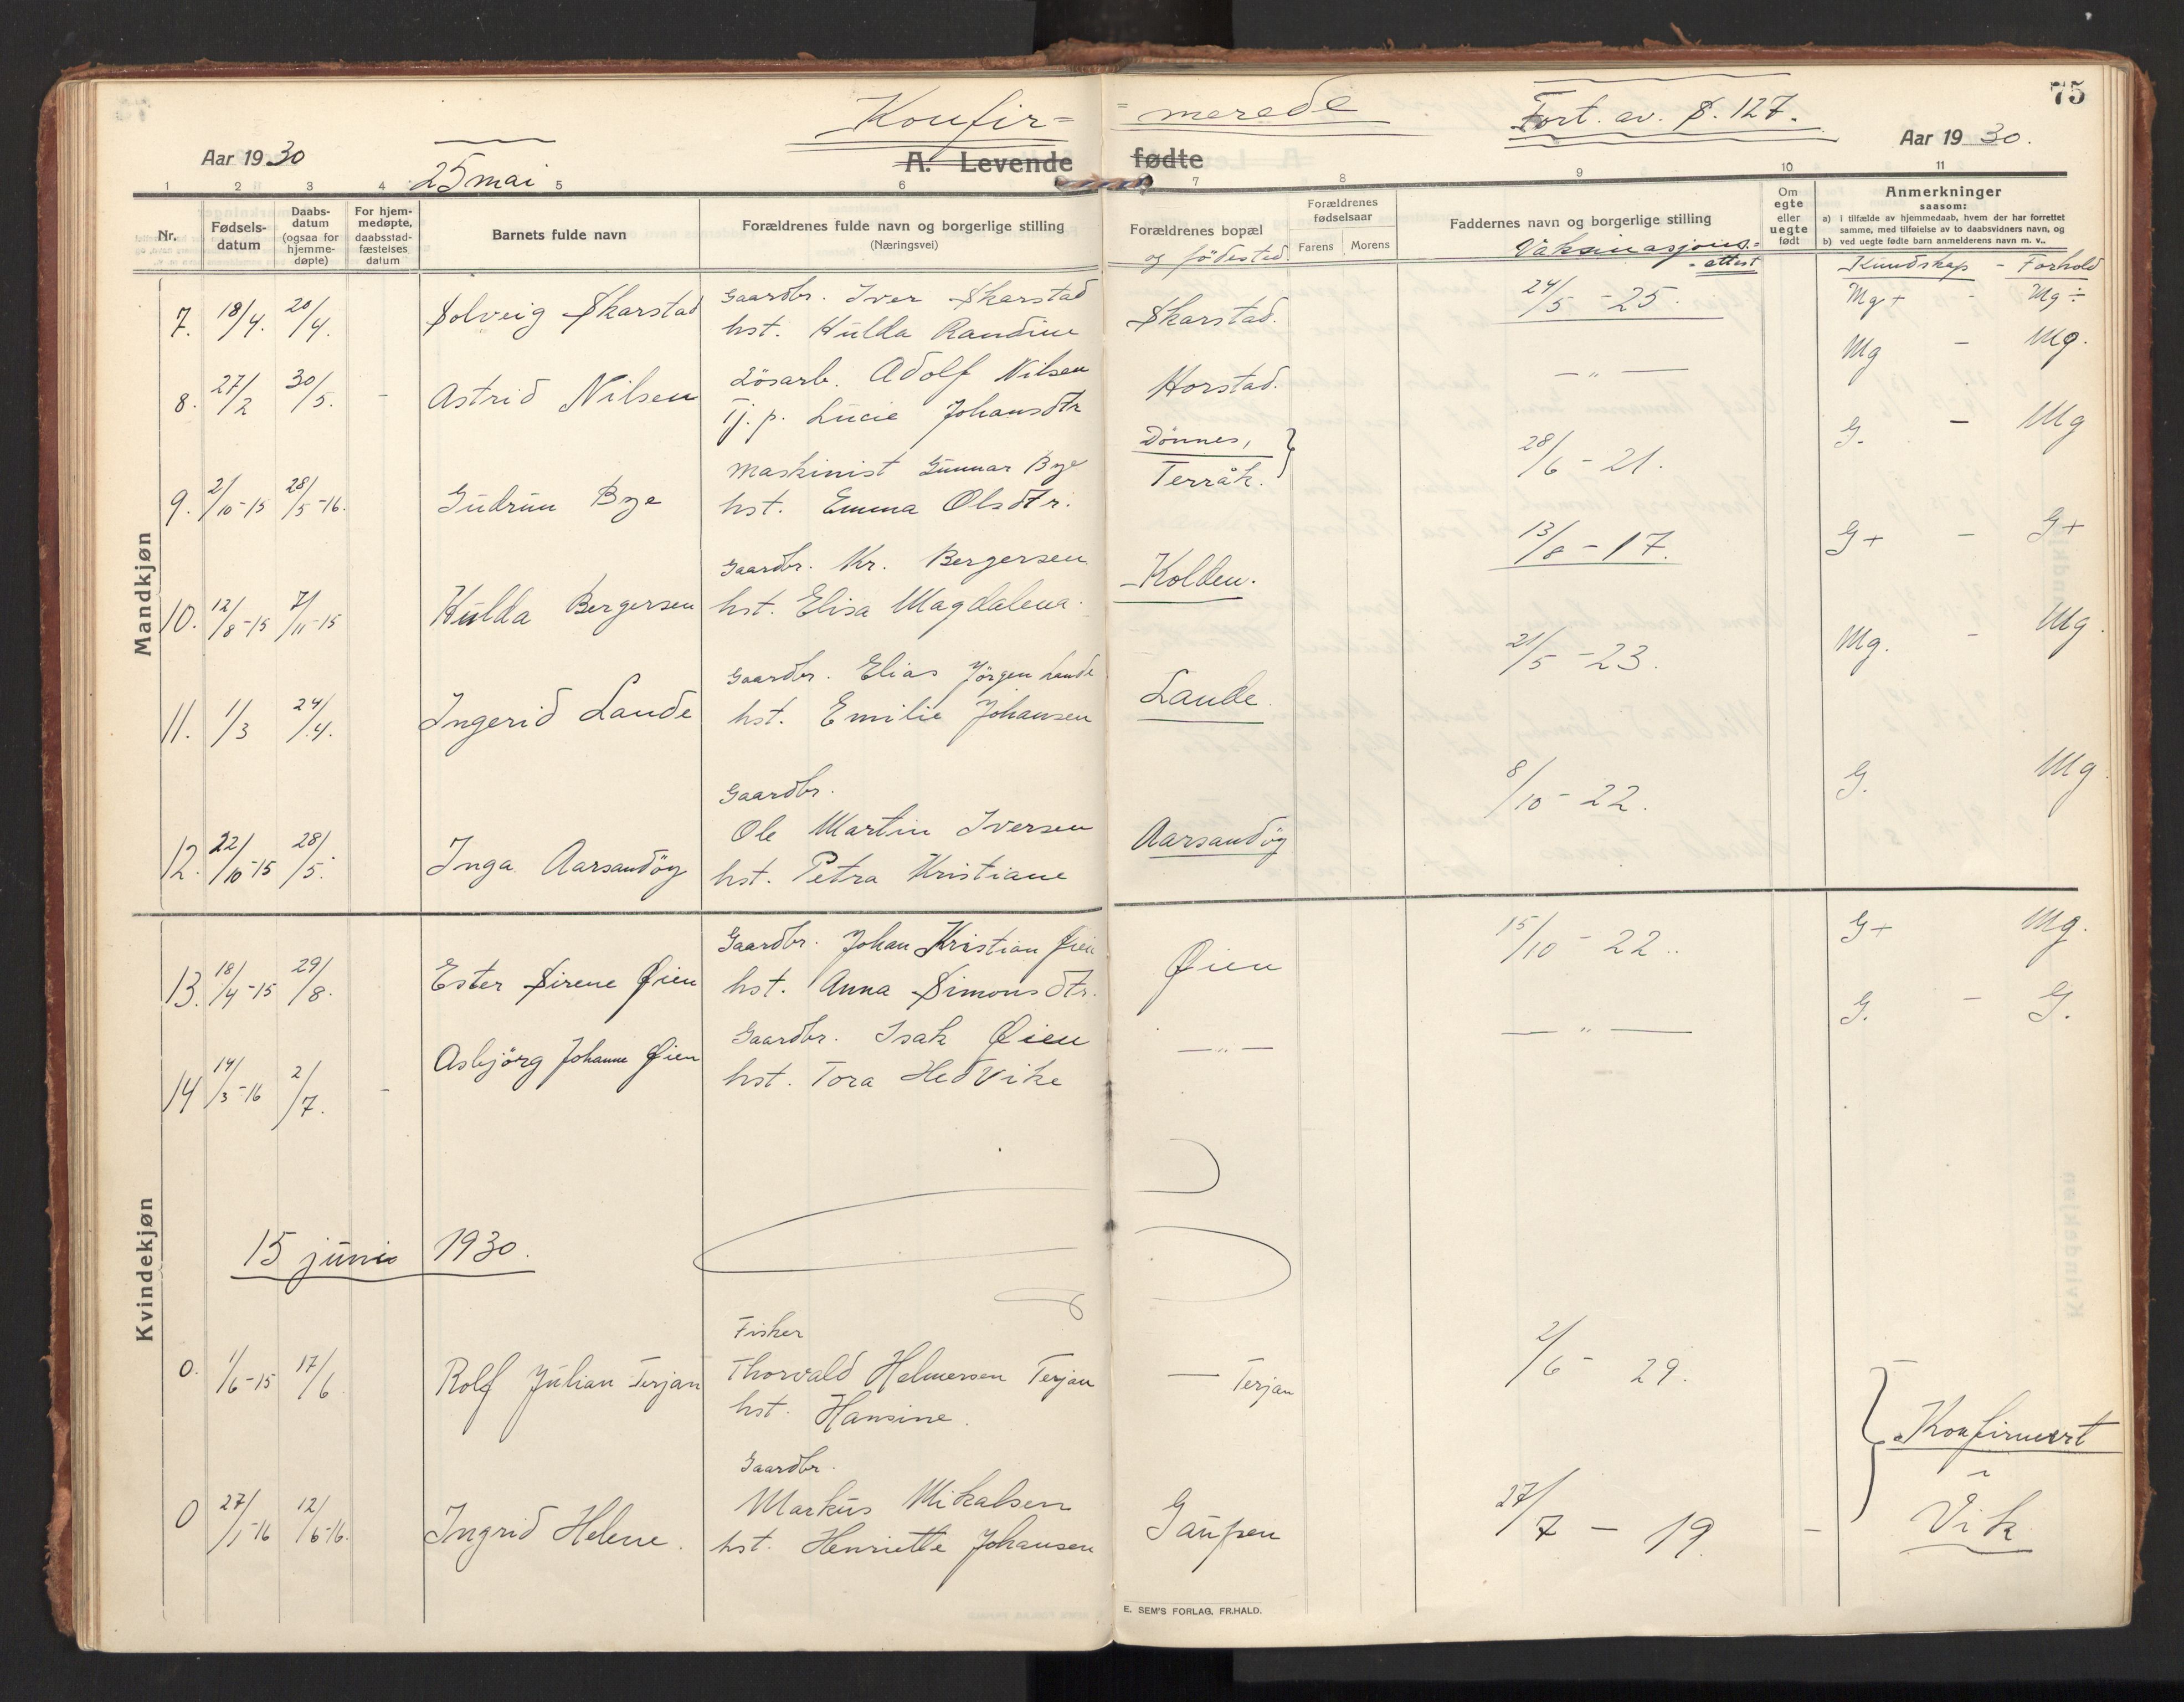 75
Konfir= =merede Fort. av. S. 127.
Aar 1930 25 mai. A. Levende fødte Aar 1930.
1 2 3 4 5 6 7 8 9 10 11
Nr. Fødsels-datum Daabs-datum (ogsaa for hjemme-døpte) For hjem-medøpte, daabsstad-fæstelses datum Barnets fulde navn Forældrenes fulde navn og borgerlige stilling (Næringsvei) Forældrenes bopæl og födested. Forældrenes fødselsaar Farens Morens Faddernes navn og borgerlige stilling Vaksinasjons=-attest Om egte eller uegte født Anmerkninger saasom:
a) i tilfælde av hjemmedaab, hvem der har forrettet samme, med tilføielse av to daabsvidners navn, og
b) ved uegte fødte barn anmelderens navn m. v..
Kundskap - Forhold
Mandkjøn
7. 18/4. 20/4. Solveig Skarstad Gaardbr. Iver Skarstad Skarstad. 24/5 - 25. Mg+ - Mg÷
hst. Hulda Randine
8. 27/2 30/5. - Astrid Nilsen Lösarb. Adolf Nilsen Horstad. — " — Mg - Mg.
Tj. p. Lucie Johansdtr
9. 2/10-15 28/5-16. Gudrun Bye Maskinist Gunnar Bye Dönnes, 28/6 - 21. G. - Mg
hst. Emma Olsdtr. Terråk.
10. 12/8-15 7/11-15 Hulda Bergersen Gaardbr. Kr. Bergersen Kolden. 13/8 - 17. G+ - G+
hst. Elisa Magdalena.
11. 1/3 24/4. Ingerid Lande Gaardbr. Elias Jörgen Lande Lande. 21/5 - 23. Mg. - Mg.
hst. Emilie Johansen
12. 22/10-15 28/5. Inga Aarsandög Gaardbr. Aarsandög 8/10 - 22. G. Mg.
Ole Martin Iversen
hst. Petra Kristiane
Kvindekjøn
13. 18/4-15 29/8. Ester Sirene Øien Gaardbr. Johan Kristian Øien Øien 15/10 - 22.. G+ Mg.
hst. Anna Simonsdtr.
14 14/3-16 2/7. - Asbjörg Johanne Øien Gaardbr. Isak Øien — " — — " — G. - G.
hst. Tora Hedvike
15 juni 1930.
0. 1/6-15 17/6 Rolf Julian Terjan Fisker — Terjan 2/6 - 29.
Thorvald Helmersen Terjan
hst. Hansine.
0 27/1-16 12/6-16. Ingrid Helene. Gaardbr. Gaupen 27/7 - 19. -
Markus Mikalsen
hst. Henriette Johansen
Konfirmert
i
Vik
E. SEM'S FORLAG, FR.HALD.